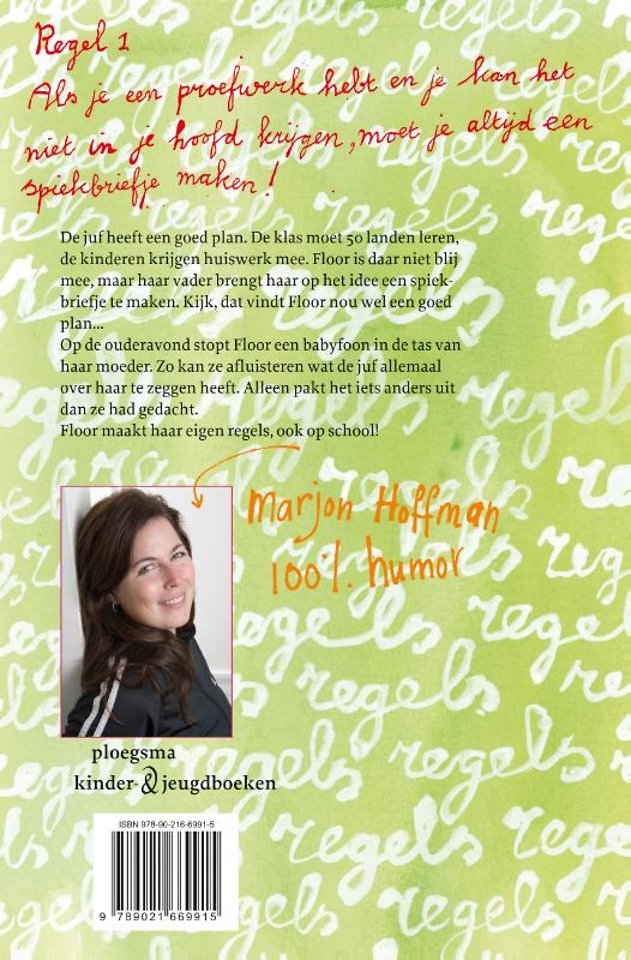 Regel 1
Als je een proefwerk hebt en je kan het
niet in je hoofd krijgen, moet je altijd een
spiekbriefje maken!
De juf heeft een goed plan. De klas moet 50 landen leren,
de kinderen krijgen huiswerk mee. Floor is daar niet blij
mee, maar haar vader brengt haar op het idee een spiek-
briefje te maken. Kijk, dat vindt Floor nou wel een goed
plan...
Op de ouderavond stopt Floor een babyfoon in de tas van
haar moeder. Zo kan ze afluisteren wat de juf allemaal
over haar te zeggen heeft. Alleen pakt het iets anders uit
dan ze had gedacht.
Floor maakt haar eigen regels, ook op school!
Marjon Hoffman
100% humor
ploegsma
kinder- & jeugdboeken
ISBN 978-90-216-6991-5
9 789021 669915
regels regels
regels regels
regels regels
regels